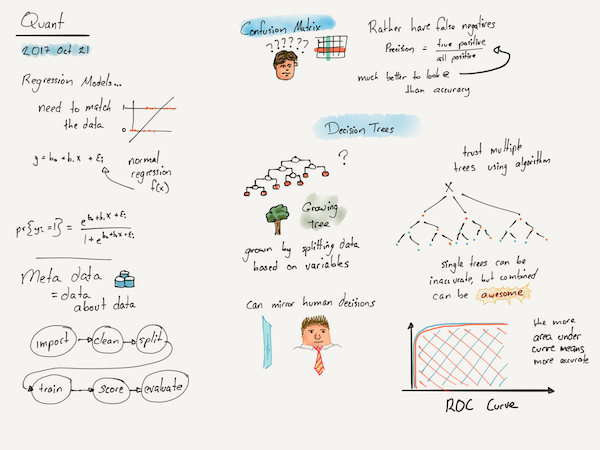 Quant
2017 Oct 21
Regression Models...
need to match
the data
1
0
y = b₀ + b₁ x + εᵢ
normal
regression
f(x)
pr{yᵢ=1} = e^(b₀+b₁x+εᵢ) / 1 + e^(b₀+b₁x+εᵢ)
Meta data
= data
about data
import
clean
split
train
score
evaluate
Confusion Matrix
??????
Rather have false negatives
Precision = true positive / all positive
much better to look @
than accuracy
Decision Trees
?
Growing
tree
grown by splitting data
based on variables
can mirror human decisions
trust multiple
trees using algorithm
X
single trees can be
inaccurate, but combined
can be awesome
the more
area under
curve means
more accurate
ROC Curve